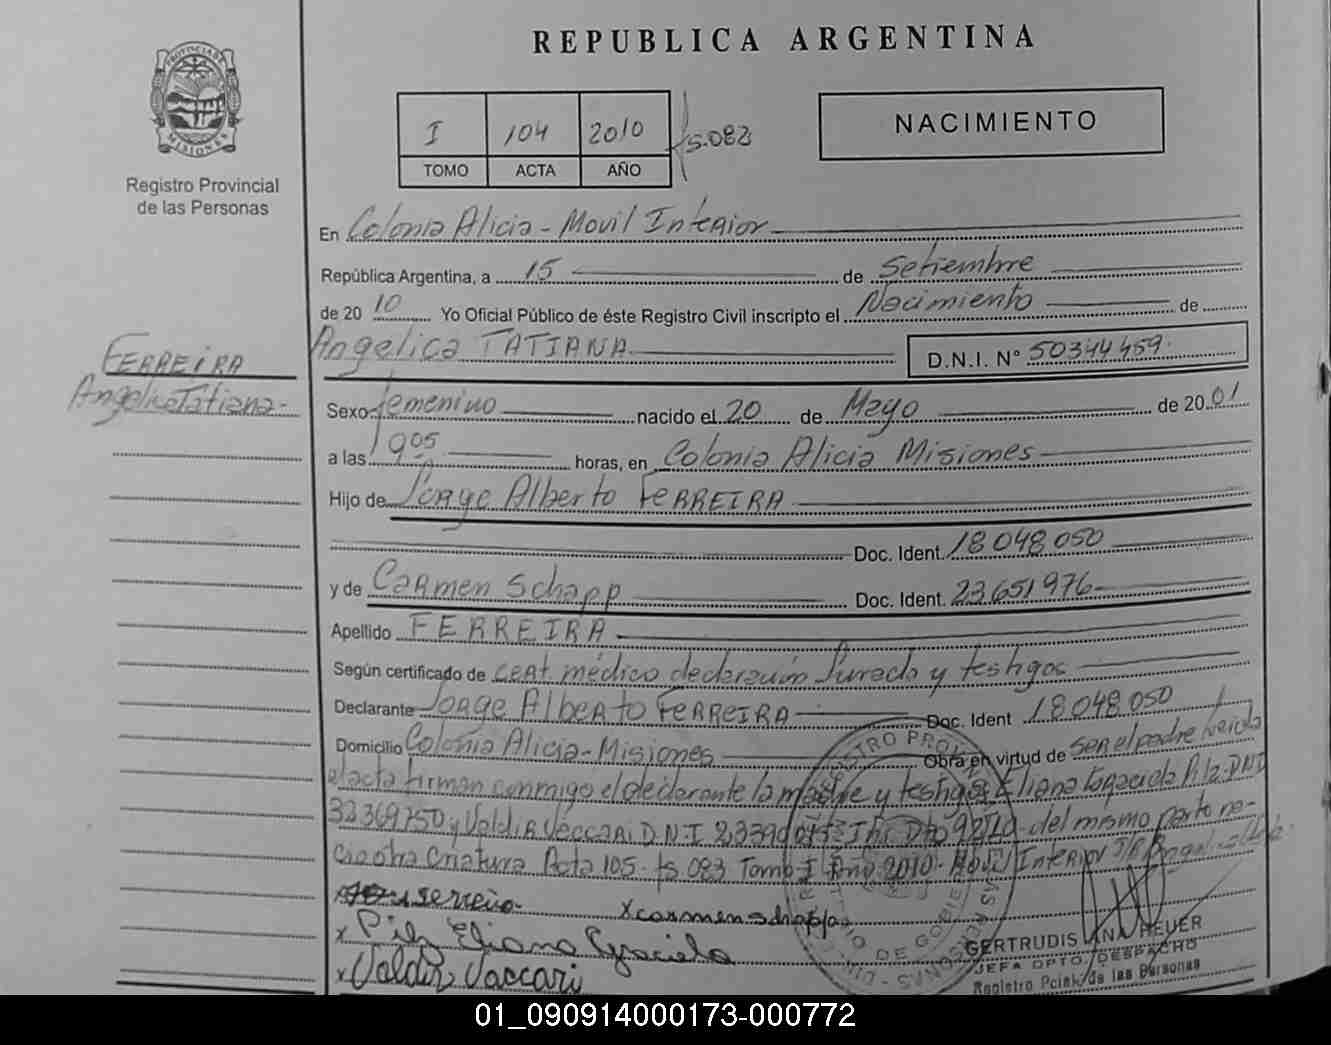 REPUBLICA ARGENTINA
PROVINCIA DE
MISIONES
Registro Provincial
de las Personas
I 104 2010 fs.083
TOMO ACTA AÑO
NACIMIENTO
En Colonia Alicia - Movil InteRior
República Argentina, a 15 de Setiembre
de 2010 Yo Oficial Público de éste Registro Civil inscripto el Nacimiento de
Angelica TATIANA D.N.I. N° 50344459.
FERREIRA
Angelica Tatiana-
Sexo femenino nacido el 20 de Mayo de 2001
a las 19 05 horas, en Colonia Alicia Misiones
Hijo de Jorge Alberto FeRREIRA
Doc. Ident. 18 048 050
y de Carmen Schapp Doc. Ident. 23 651 976
Apellido FERREIRA
Según certificado de CeRt médico declaración Jurada y testigos
Declarante Jorge AlbeRto FeRReiRA Doc. Ident 18 048 050
Domicilio Colonia Alicia - Misiones Obra en virtud de ser el padre leida
el acta firman conmigo el declarante la madre y testigos Eliana Graciela Pilz DNI
32369750 y Valdir Vaccari D.N.I Dto 92/10 del mismo parto na-
Cio otra Criatura Acta 105 - fs 083 Tomo I Año 2010 - Movil Interior
x carmen schapp
x Pilz Eliana Graciela
x Valdir Vaccari
GERTRUDIS HEUER
JEFA DPTO. DESPACHO
Registro Pcial. de las Personas
01_090914000173-000772